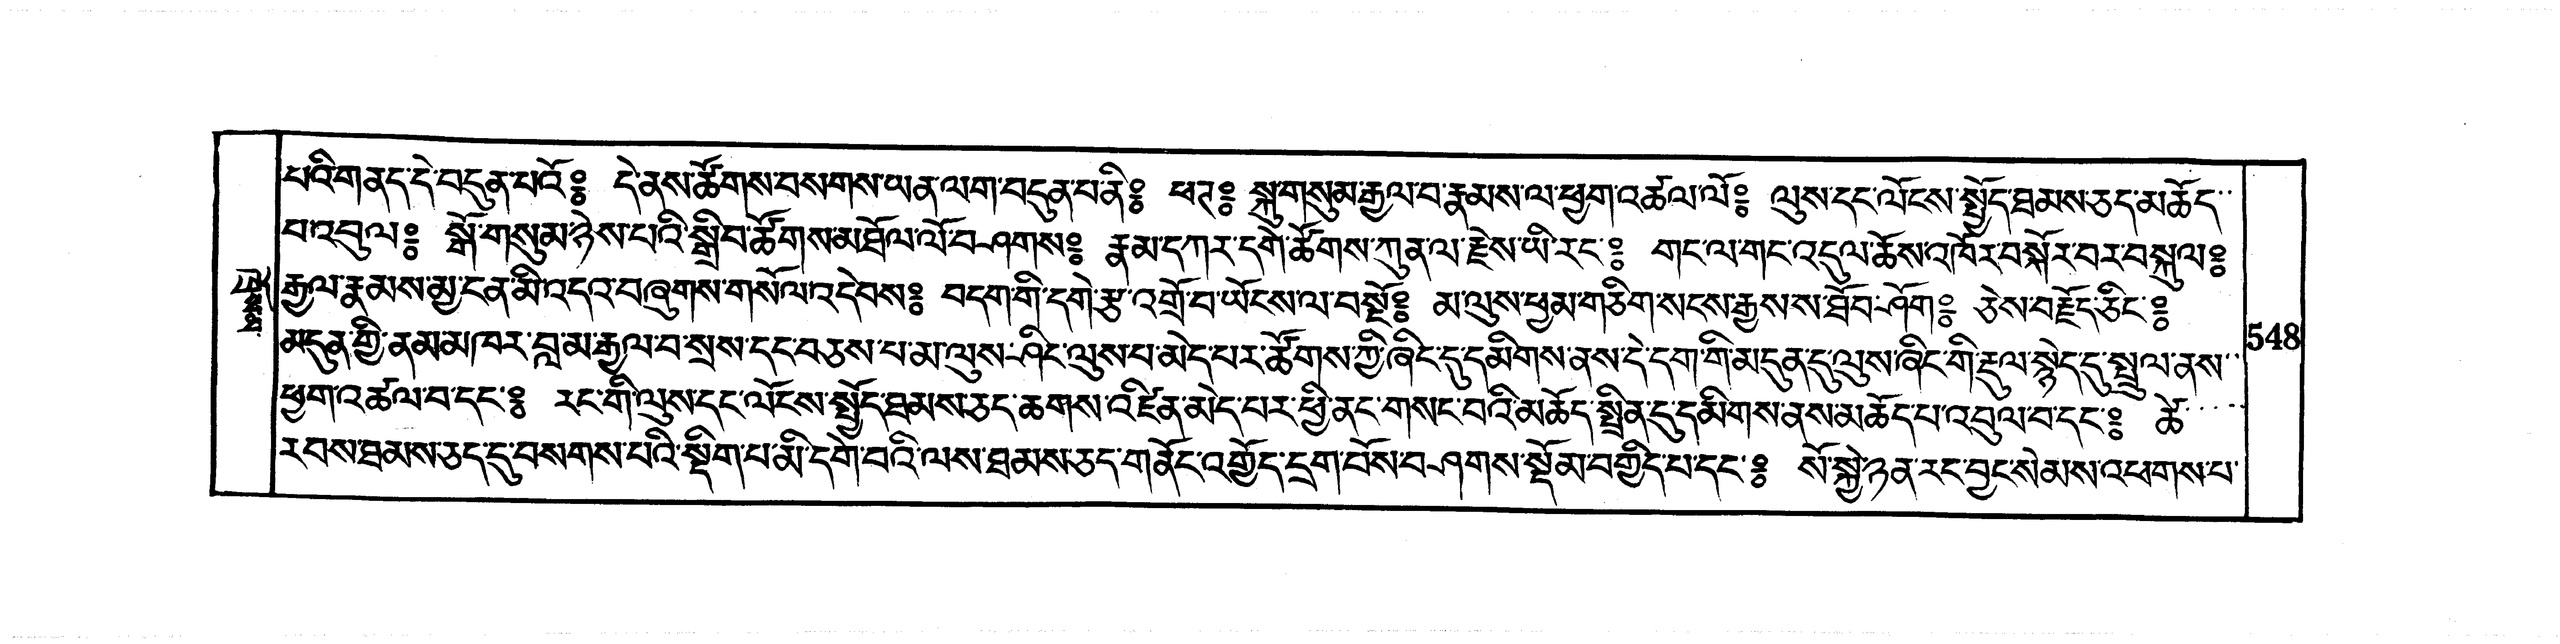 པའི་གནད་དེ་བདུན་པའོ༔ དེ་ནས་ཚོགས་བསགས་ཡན་ལག་བདུན་བ་ནི༔ ཕཊ༔ སྐུ་གསུམ་རྒྱལ་བ་རྣམས་ལ་ཕྱག་འཚལ་ལོ༔ ལུས་དང་ལོངས་སྤྱོད་ཐམས་ཅད་མ་ཆོད་
བ་འབུལ༔ སྒོ་གསུམ་ཉེས་པའི་སྒྲིབ་ཚོགས་མཐོལ་ལོ་བཤགས༔ རྣམ་དཀར་དགེ་ཚོགས་ཀུན་ལ་རྗེས་ཡི་རང་༔ གང་ལ་གང་འདུལ་ཆོས་འཁོར་བསྐོར་བར་བསྐུལ༔
རྒྱལ་རྣམས་མྱ་ངན་མི་འདའ་བཞུགས་གསོལ་འདེབས༔ བདག་གི་དགེ་རྩ་འགྲོ་བ་ཡོངས་ལ་བསྔོ༔ མ་ལུས་ཕྱམ་གཅིག་སངས་རྒྱས་ས་ཐོབ་ཤོག༔ ཅེས་བརྗོད་ཅིང་༔
མདུན་གྱི་ནམ་མཁར་བླ་མ་རྒྱལ་བ་སྲས་དང་བཅས་པ་མ་ལུས་ཤིང་ལུས་པ་མེད་པར་ཚོགས་ཀྱི་ཞིང་དུ་དམིགས་ནས་དེ་དག་གི་མདུན་དུ་ལུས་ཞིང་གི་རྡུལ་སྙེད་དུ་སྤྲུལ་ནས་
ཕྱག་འཚལ་བ་དང་༔ རང་གི་ལུས་དང་ལོངས་སྤྱོད་ཐམས་ཅད་ཆགས་འཛིན་མེད་པར་ཕྱི་ནང་གསང་བའི་མཆོད་སྤྲིན་དུ་དམིགས་ནས་མཆོད་པ་འབུལ་བ་དང་༔ ཚེ་
རབས་ཐམས་ཅད་དུ་བསགས་པའི་སྡིག་པ་མི་དགེ་བའི་ལས་ཐམས་ཅད་གནོང་འགྱོད་དྲག་པོས་བཤགས་སྡོམ་བགྱིད་པ་དང་༔ སོ་སྐྱེ་ཉན་རང་བྱང་སེམས་འཕགས་པ་
548